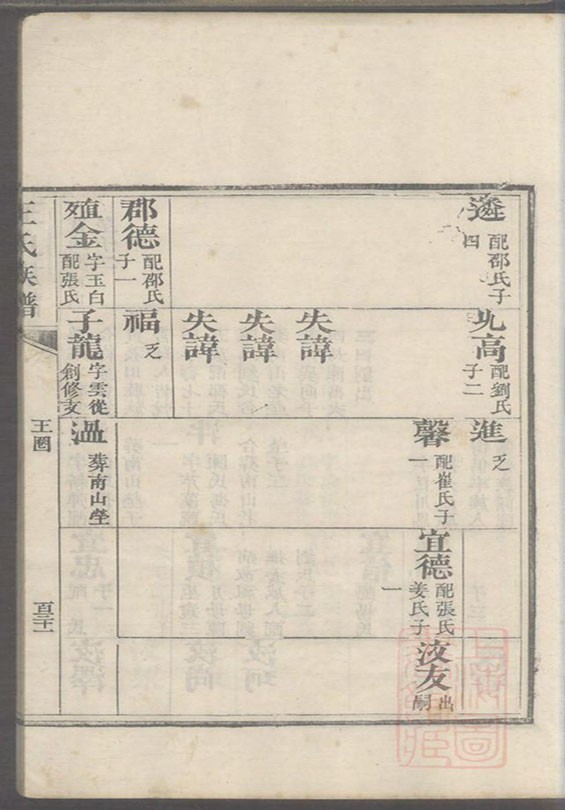 配邵氏子四
九高 配劉氏子二
進 乏
馨 配崔氏子一
宜德 配張氏姜氏子一
汝友 出嗣
失諱
失諱
失諱
郡德 配邵氏子一
福 乏
殖金 字玉白配張氏
子龍 字雲從創修支
溫 葬南山塋
王氏族譜
王圈